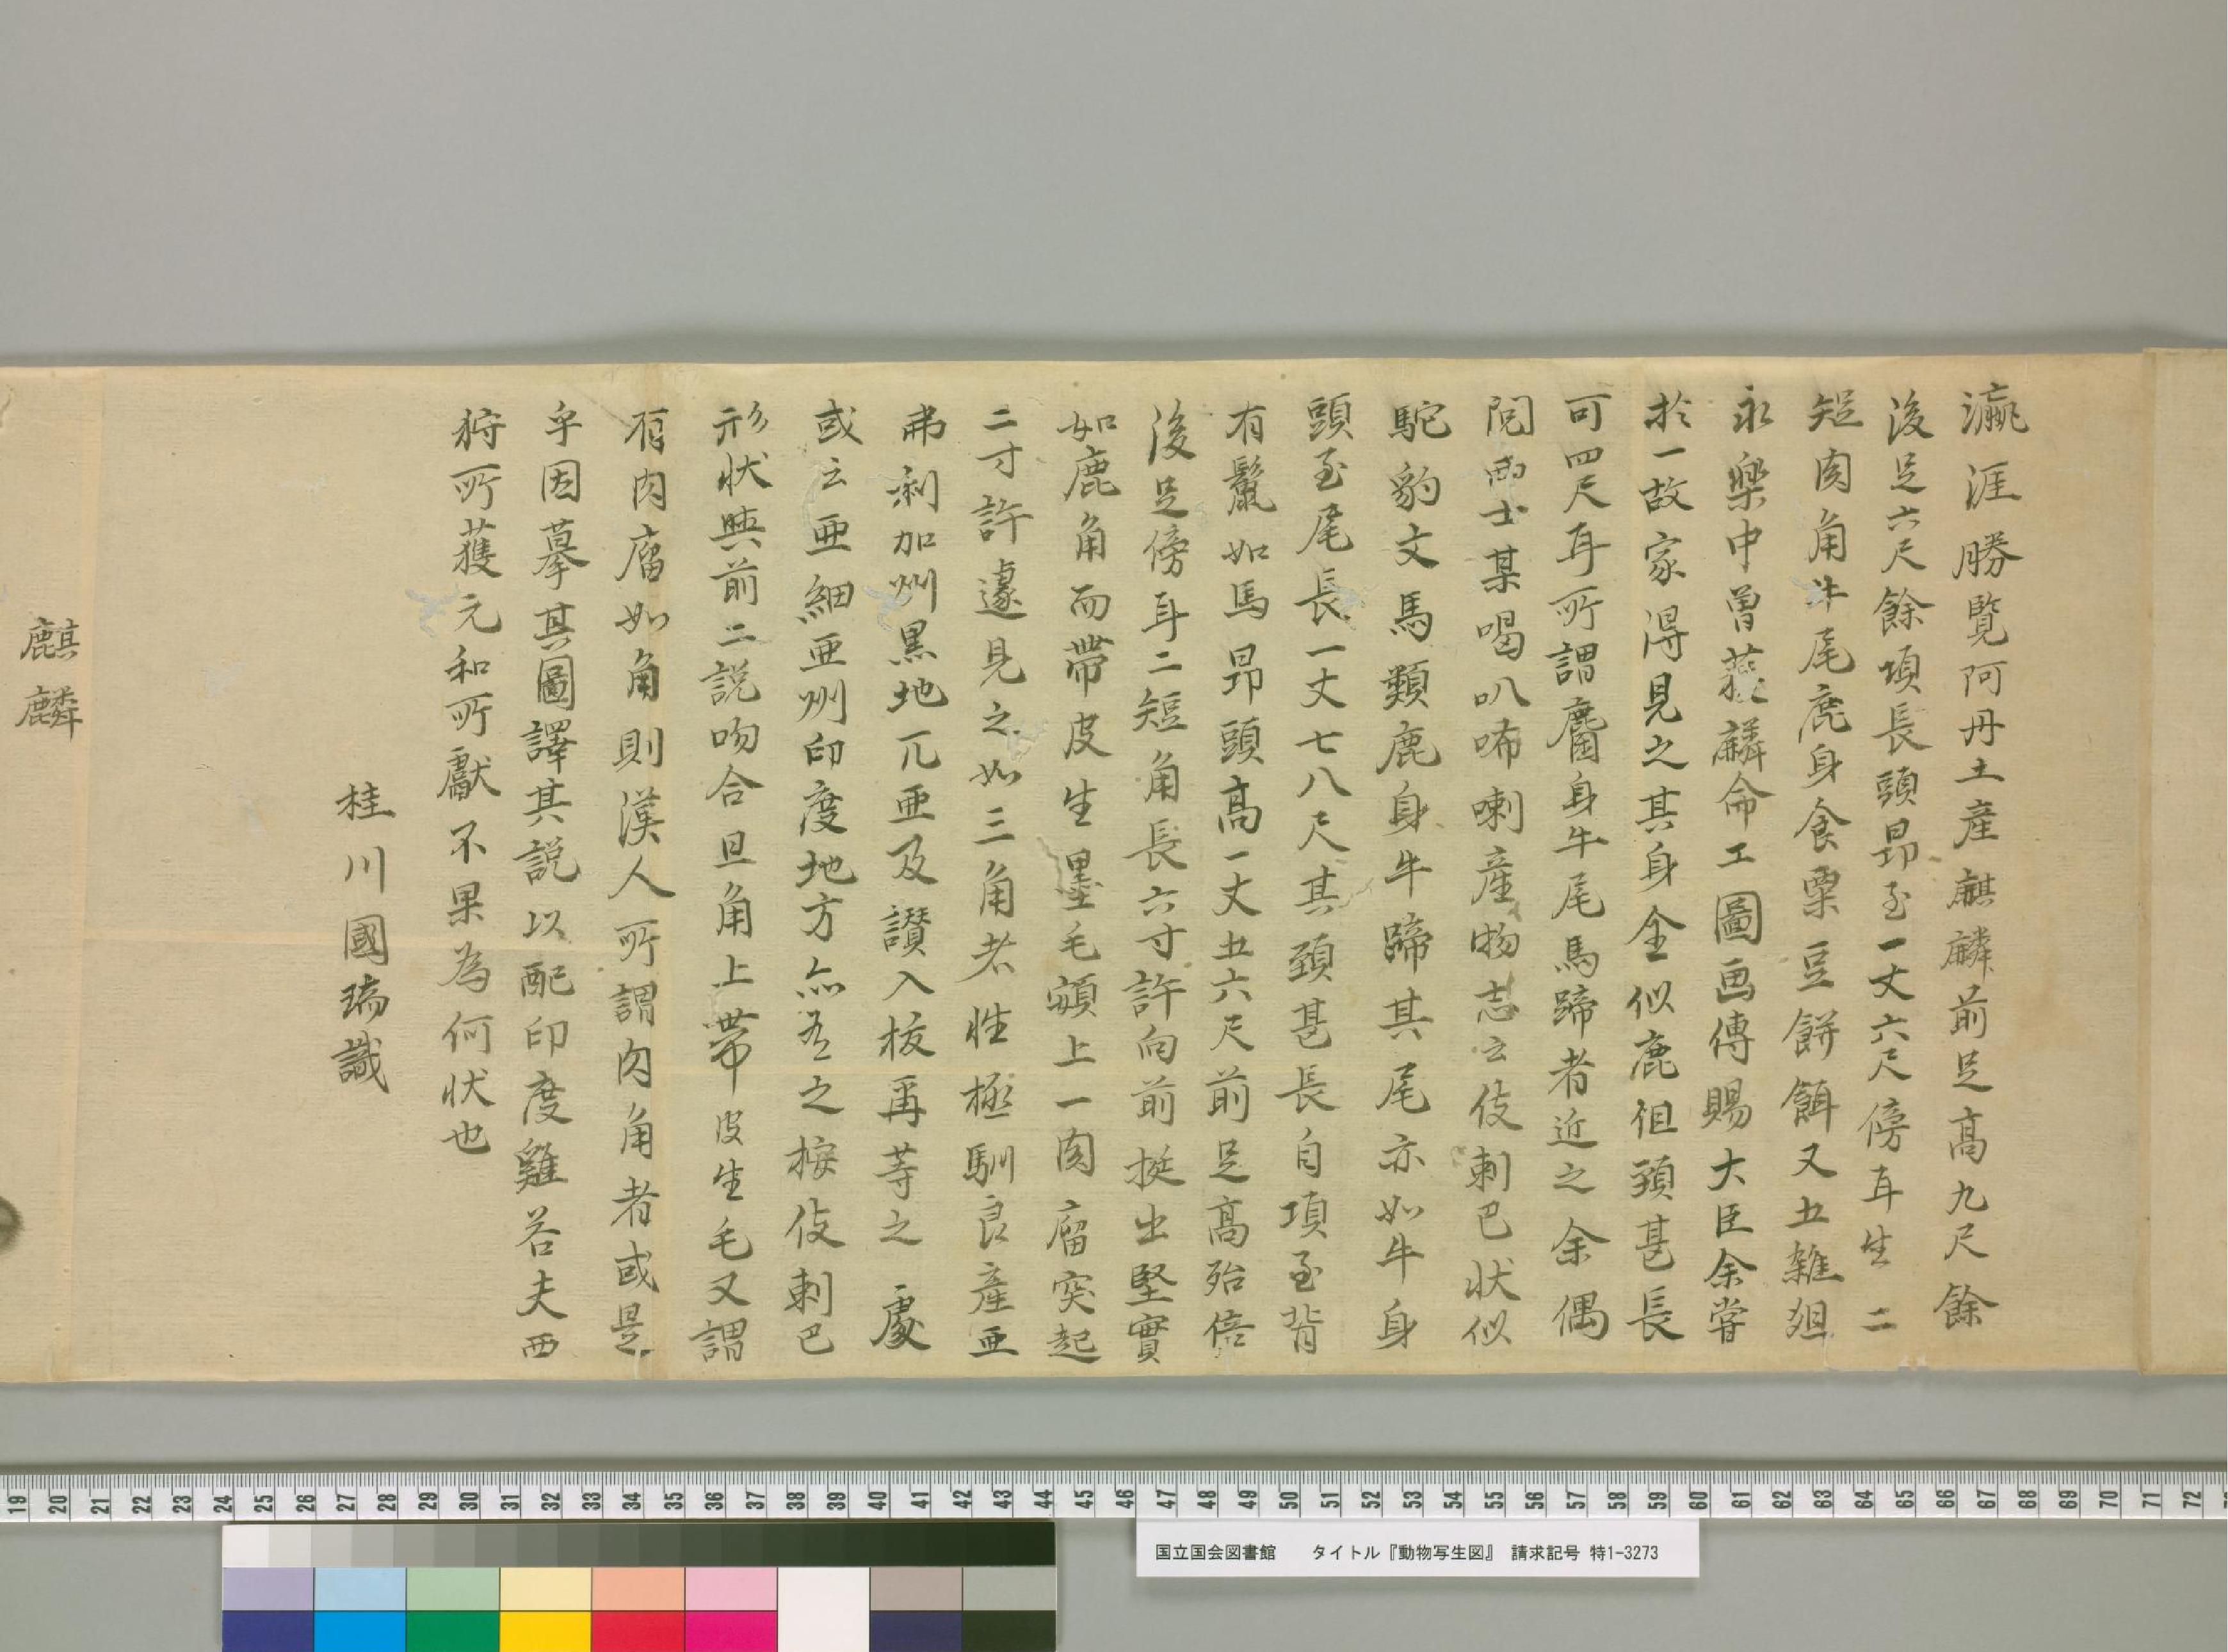 瀛涯勝覧阿丹土産麒麟前足高九尺餘
後足六尺餘項長頭昂至一丈六尺傍耳生二
短肉角牛尾鹿身食粟豆餅餌又五雜俎
永樂中曽獲麟命工圖画傳賜大臣余嘗
於一故家得見之其身全似鹿但頚甚長
可四尺耳所謂麕身牛尾馬蹄者近之余偶
閲西士某喝叭哂喇産物志云伎剌巴状似
駝豹文馬類鹿身牛蹄其尾亦如牛身
頭至尾長一丈七八尺其頚甚長自項至背
有鬣如馬昂頭高一丈五六尺前足高殆倍
後足傍耳二短角長六寸許向前挺出堅實
如鹿角而帶皮生墨毛頞上一肉瘤突起
二寸許遽見之如三角者性極馴良産亜
弗利加州黒地兀亜及讃入抜再等之處
或云亜細亜州印度地方亦有之按伎剌巴
形状與前二説吻合旦角上帯皮生毛又謂
有肉瘤如角則漢人所謂肉角者或是
乎因摹其圖譯其説以配印度雞若夫西
狩所獲元和所獻不果為何状也
桂川國瑞識
麒麟
19 20 21 22 23 24 25 26 27 28 29 30 31 32 33 34 35 36 37 38 39 40 41 42 43 44 45 46 47 48 49 50 51 52 53 54 55 56 57 58 59 60 61 62 63 64 65 66 67 68 69 70 71 72
国立国会図書館 タイトル『動物写生図』 請求記号 特1-3273